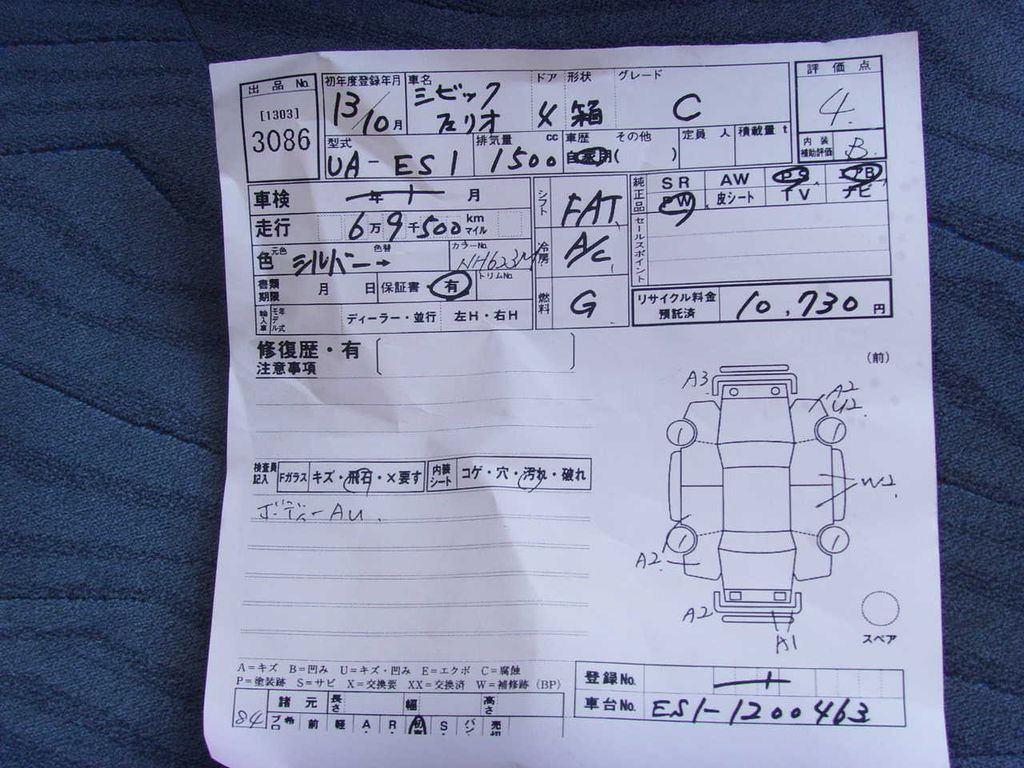 出品 No. 初年度登録年月 車名 ドア 形状 グレード 評価点
[1303]
3086 13/10月 シビック フェリオ 4 箱 C 4
型式 排気量 cc 車歴 その他 定員 人 積載量 t 内装 補助評価
UA-ES1 1500 自家用( ) B
車検 年 月 シフト FAT 純正品 SR AW PS AB
PW 皮シート TV ナビ
走行 6万9千500 km マイル
冷房 A/C セールスポイント
色 元色 シルバー → 色替 カラーNo. NH623M
書類期限 月 日 保証書・有 トリムNo. 燃料 G
リサイクル料金 預託済 10,730 円
輸入車 モデル年式 ディーラー・並行 左H・右H
修復歴・有
注意事項
(前)
A3 A2 U2
検査員記入 Fガラス キズ・飛石・×要す 内装シート コゲ・穴・汚れ・破れ
W2
ボディーAU.
A2
A2 A1
スペア
A=キズ B=凹み U=キズ・凹み E=エクボ C=腐蝕
P=塗装跡 S=サビ X=交換要 XX=交換済 W=補修跡(BP)
登録No.
諸元 長さ 幅 高さ
車台No. ES1-1200463
84 前 軽 A R S